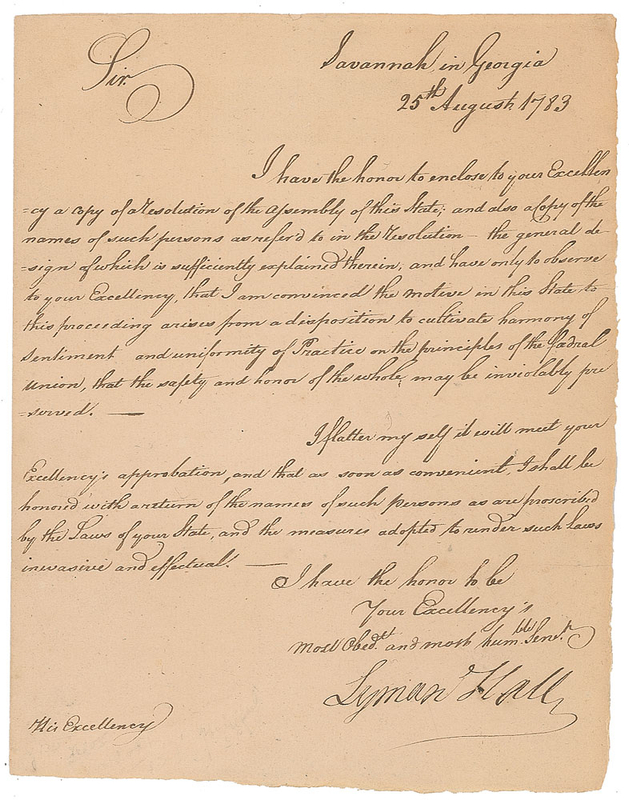 Sir.
Savannah in Georgia
25th August 1783
I have the honor to enclose to your Excellen
=cy a copy of a Resolution of the Assembly of this State; and also a Copy of the
names of such persons as refer'd to in the Resolution — the general de-
=sign of which is sufficiently explained therein, and have only to observe
to your Excellency, that I am convinced the motive in this State to
this proceeding arises from a disposition to cultivate harmony of
Sentiment and uniformity of Practice on the principles of the fœdral
union, that the safety and honor of the whole, may be inviolably pre
=served. —
I flatter my self it will meet your
Excellency's approbation, and that as soon as convenient, I shall be
honored with a return of the names of such persons as are proscribed
by the Laws of your State, and the measures adopted to render such laws
inevasive and effectual. —
I have the honor to be
Your Excellency's
Most Obedtt and most humble Servt
Lyman Hall
His Excellency